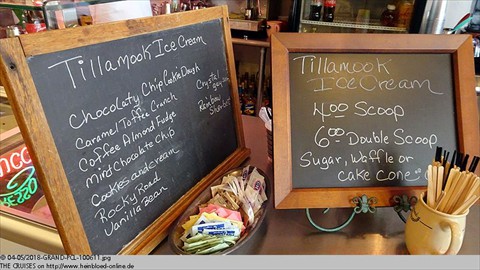 Tillamook Ice Cream
Chocolaty Chip Cookie Dough
Caramel Toffee Crunch
Coffee Almond Fudge
Mint Chocolate Chip
Cookies and cream
Rocky Road
Vanilla Bean
Rainbow
Sherbet
Tillamook
Ice Cream
4.00 Scoop
6.00 Double Scoop
Sugar, Waffle or
cake cone
© 04-05/2018-GRAND-PCL-100611.jpg
THE CRUISES on http://www.heinbloed-online.de